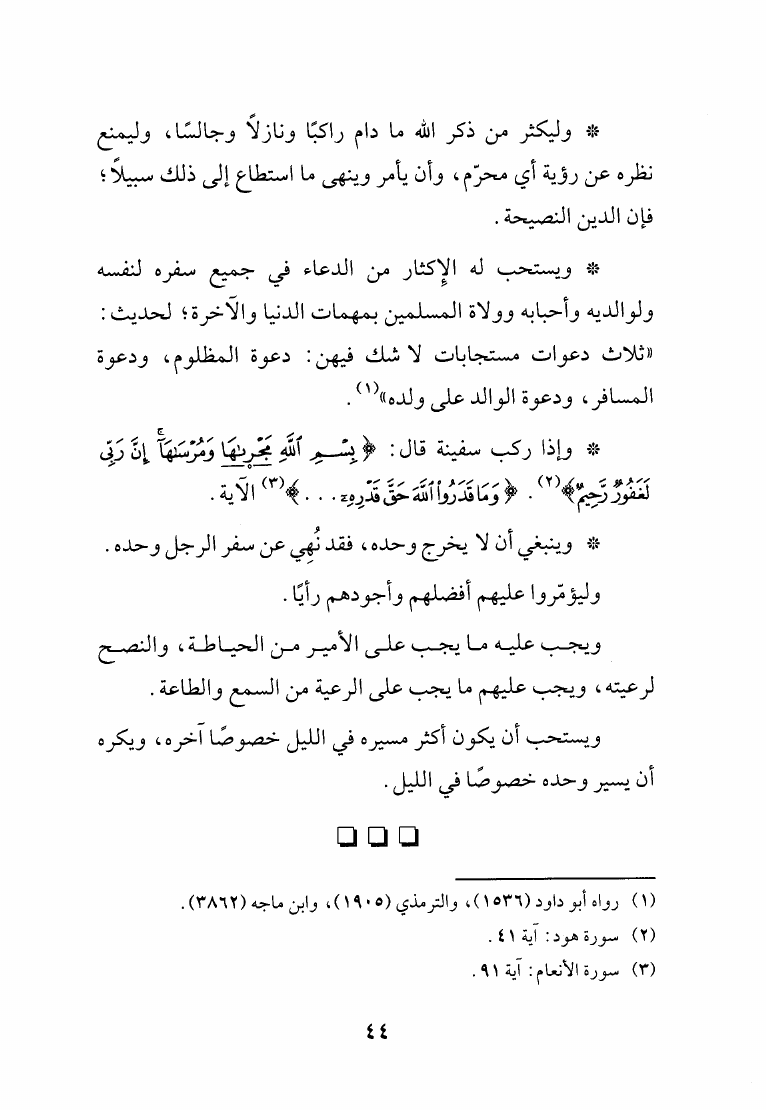 * وليكثر من ذكر الله ما دام راكبًا ونازلاً وجالسًا، وليمنع
نظره عن رؤية أي محرّم، وأن يأمر وينهى ما استطاع إلى ذلك سبيلاً؛
فإن الدين النصيحة.
* ويستحب له الإكثار من الدعاء في جميع سفره لنفسه
ولوالديه وأحبابه وولاة المسلمين بمهمات الدنيا والآخرة؛ لحديث:
«ثلاث دعوات مستجابات لا شك فيهن: دعوة المظلوم، ودعوة
المسافر، ودعوة الوالد على ولده»(١).
* وإذا ركب سفينة قال: ﴿بِسْمِ ٱللَّهِ مَجْرٜىٰهَا وَمُرْسَىٰهَآ ۚ إِنَّ رَبِّى
لَغَفُورٌ رَّحِيمٌ﴾(٢). ﴿وَمَا قَدَرُوا۟ ٱللَّهَ حَقَّ قَدْرِهِۦ . . .﴾(٣) الآية.
* وينبغي أن لا يخرج وحده، فقد نُهِي عن سفر الرجل وحده.
وليؤمّروا عليهم أفضلهم وأجودهم رأيًا.
ويجب عليه ما يجب على الأمير من الحياطة، والنصح
لرعيته، ويجب عليهم ما يجب على الرعية من السمع والطاعة.
ويستحب أن يكون أكثر مسيره في الليل خصوصًا آخره، ويكره
أن يسير وحده خصوصًا في الليل.
□ □ □
(١) رواه أبو داود (١٥٣٦)، والترمذي (١٩٠٥)، وابن ماجه (٣٨٦٢).
(٢) سورة هود: آية ٤١.
(٣) سورة الأنعام: آية ٩١.
٤٤